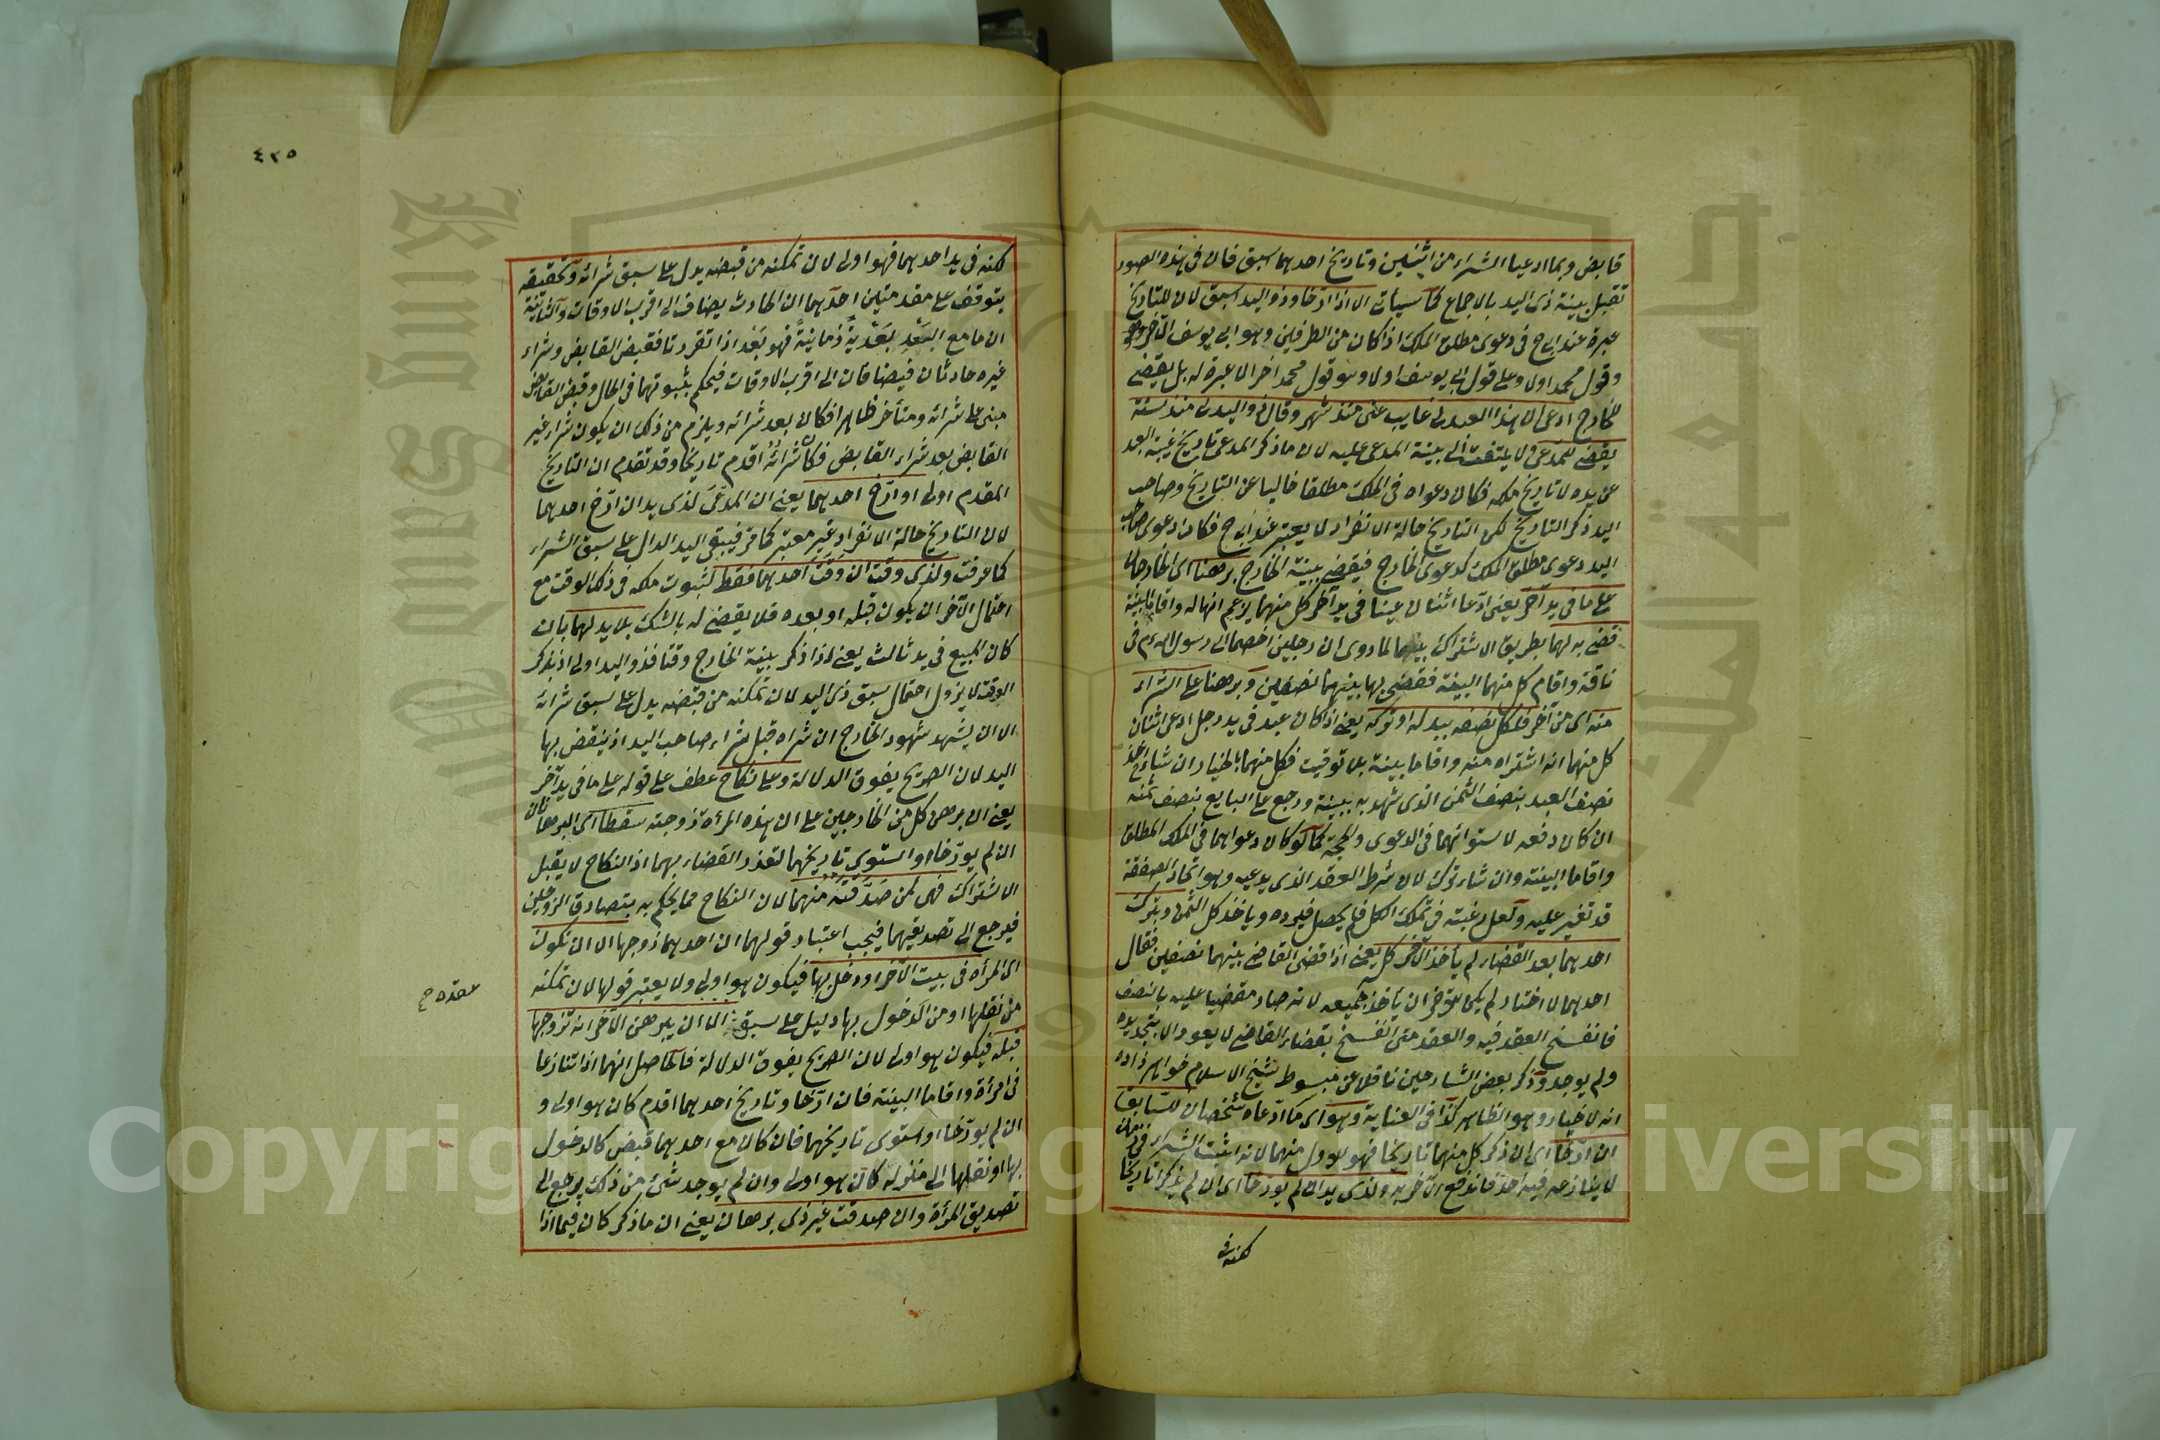 قابض وبما ادعيا الشراء من اثنين وتاريخ احدهما سبق فان في هذه الصور
تقبل بينة ذي اليد بالاجماع كما سيأتي الا اذا ارخا وذو اليد اسبق لان للتاريخ
عبرة عند ابي ح في دعوى مطلق الملك اذا كان من الطرفين وهو ابي يوسف الآخر
وقول محمد اولا وعلى قول ابي يوسف اولا وهو قول محمد اخرا لا عبرة له بل يقضى
للخارج ادعى ان هذا العبد لي غايب عني منذ شهر وقال ذو اليد لي منذ سنة
يقضى للمدعي ولا يلتفت الى بينة المدعى عليه لان ما ذكر المدعي تاريخ غيبة العبد
عن يده لا تاريخ ملكه فكان دعواه في الملك مطلقا خاليا عن التاريخ وصاحب
اليد ذكر التاريخ لكن التاريخ حالة الانفراد لا يعتبر عند ابي ح فكان دعوى صاحب
اليد دعوى مطلق الملك كدعوى الخارج فيقضى ببينة الخارج برهنا اى الخارجان
على ما في يد آخر يعني ادعا اثنان عينا في يد آخر كل منهما يزعم انها له واقاما البينة
قضي به لهما بطريق الاشتراك بينهما لما روى ان رجلين اختصما الى رسول الله ءم في
ناقة واقام كل منهما البينة فقضى بها بينهما نصفين وبرهنا على الشراء
منه اى من آخر فلكل نصفه ببدله او تركه يعني اذا كان عبد في يد رجل ادعى اثنان
كل منهما انه اشتراه منه واقاما بينة بلا توقيت فكل منهما بالخيار ان شاء اخذ
نصف العبد بنصف الثمن الذي شهد به ببينة ورجع على البايع بنصف ثمنه
ان كان دفعه لاستوائهما في الدعوى والحجة كما لو كان دعواهما في الملك المطلق
واقاما البينة وان شاء ترك لان شرط العقد الذي يدعيه وهو اتحاد الصفقة
قد تغير عليه ولعل رغبته في تملك الكل فلم يحصل فيرده وياخذ كل الثمن وبترك
احدهما بعد القضاء لم يأخذ الآخر كل يعني اذا قضى القاضي بينهما نصفين فقال
احدهما لا اختار لم يكن للآخر ان يأخذ جميعه لانه صار مقضيا عليه بالنصف
فانفسخ العقد فيه والعقد متى انفسخ بقضاء القاضي لا يعود الا بتجديده
ولم يوجد وذكر بعض الشارحين ناقلا عن مبسوط شيخ الاسلام خواهر زاده
انه لا خيار وهو الظاهر كذا في العناية وهو اى ما ادعاه شخصان للسابق
ان ارخا اى ان ذكر كل منهما تاريخا فهو للاول منهما لانه اثبت الشراء في زمان
لا ينازعه فيه احد فاندفع الآخر به ولذي يد ان لم يورخا اى ان لم يذكرا تاريخا
لكنه في
٤٢٥
لكنه في يد احدهما فهو اولى لان تمكنه من قبضه يدل على سبق شرائه وتحقيقه
يتوقف على مقدمتين احداهما ان الحادث يضاف الى اقرب الاوقات والثانية
ان ما مع البَعْدِ بَعْدِيةً زمانيةً فهو بَعْد اذا تقرر هذا فقبض القابض وشراء
غيره حادثان فيضافان الى اقرب الاوقات فيحكم بثبوتهما في الحال وقبض القابض
مبني على شرائه ومتأخر ظاهرا فكان بعد شرائه ويلزم من ذلك ان يكون شراء غير
القابض بعد شراء القابض فكان شرائه اقدم تاريخا وقد تقدم ان التاريخ
المقدم اولى او ارخ احدهما يعني ان المدعَى لذي يد ان ارخ احدهما
لان التاريخ حالة الانفراد غير معتبر كما مر فيبقى اليد الدال على سبق الشراء
كما عرفت ولذي وقت ان وقت احدهما فقط لثبوت ملكه في ذلك الوقت مع
احتمال الآخر ان يكون قبله او بعده فلا يقضى له بالشك بلا يد لهما بان
كان المبيع في يد ثالث يعني اذا ذكر بينة الخارج وقتا فذو اليد اولى اذ بذكر
الوقت لا يزول احتمال سبق ذي اليد لان تمكنه من قبضه يدل على سبق شرائه
الا ان يشهد شهود الخارج ان شراه قبل شراء صاحب اليد اذ ينقض بها
اليد لان الصريح يفوق الدلالة وعلى نكاح عطف على قوله على ما في يد آخر
يعني ان برهن كل من الخارجين على ان هذه المرأة زوجته سقطا اى البرهانان
ان لم يورخا او استوى تاريخهما لتعذر القضاء بهما اذ النكاح لا يقبل
الاشتراك فهى لمن صَدَّقَتْه منهما لان النكاح مما يحكم به بتصادق الزوجين
فيرجع الى تصديقهما فيجب اعتبار قولهما ان احدهما زوجها الا ان تكون
اى المرأة في بيت الآخر او دخل بها فيكون هو اولى ولا يعتبر قولها لان تمكنه
من نقلها او من الدخول بها دليل على سبق الا ان يبرهن الآخر انه تزوجها
عقده صح
قبله فيكون هو اولى لان الصريح يفوق الدلالة فالحاصل انهما اذا تنازعا
في امرأة واقاما البينة فان ارخا وتاريخ احدهما اقدم كان هو اولى و
ان لم يورخا او استوى تاريخهما فان كان مع احدهما قبض كالدخول
بها او نقلها الى منزله كان هو اولى وان لم يوجد شئ من ذلك يرجع الى
تصديق المرأة وان صدقت غير ذي برهان يعني ان ما ذكر كان فيما اذا
Copyright © King Saud University